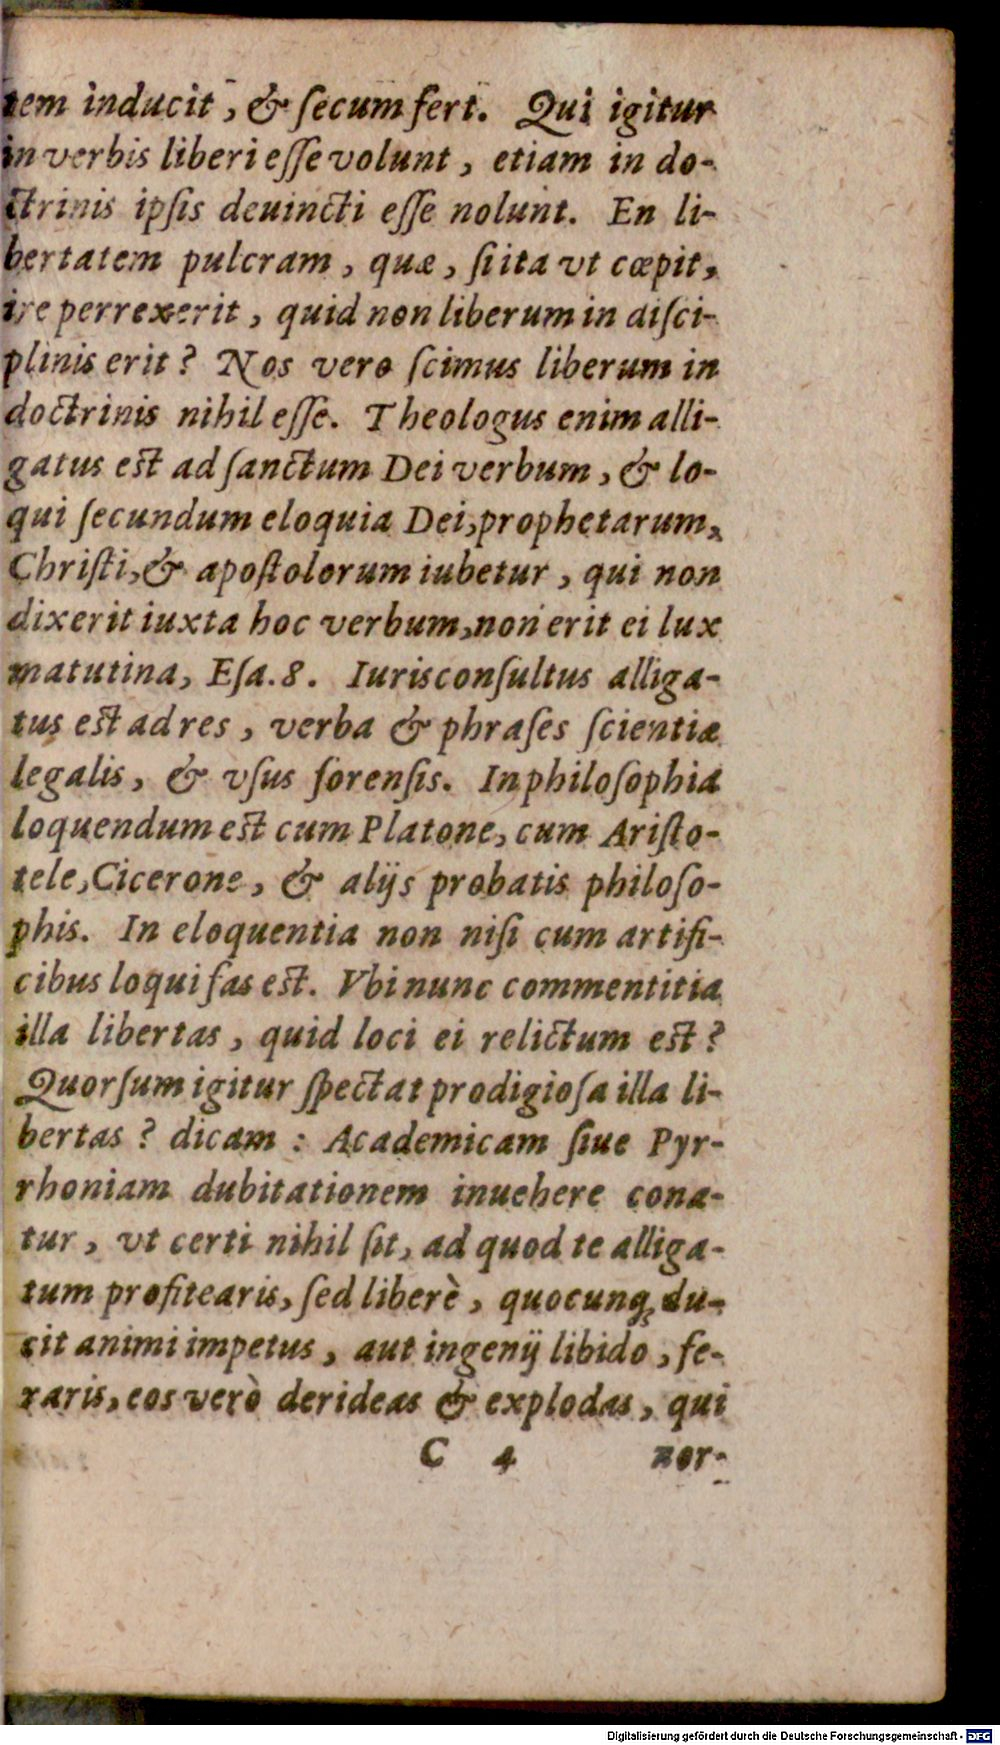 tem inducit, & ſecum fert. Qui igitur
in verbis liberi eſſe volunt, etiam in do-
ctrinis ipſis deuincti eſſe nolunt. En li-
bertatem pulcram, quæ, ſi ita vt cœpit,
ire perrexerit, quid non liberum in diſci-
plinis erit? Nos vero ſcimus liberum in
doctrinis nihil eſſe. Theologus enim alli-
gatus eſt ad ſanctum Dei verbum, & lo-
qui ſecundum eloquia Dei, prophetarum,
Chriſti, & apoſtolorum iubetur, qui non
dixerit iuxta hoc verbum, non erit ei lux
matutina, Eſa. 8. Iurisconſultus alliga-
tus eſt ad res, verba & phraſes ſcientiæ
legalis, & vſus forenſis. In philoſophia
loquendum eſt cum Platone, cum Ariſto-
tele, Cicerone, & alijs probatis philoſo-
phis. In eloquentia non niſi cum artifi-
cibus loqui fas eſt. Vbi nunc commentitia
illa libertas, quid loci ei relictum eſt?
Quorſum igitur ſpectat prodigioſa illa li-
bertas? dicam: Academicam ſiue Pyr-
rhoniam dubitationem inuehere cona-
tur, vt certi nihil ſit, ad quod te alliga-
tum profitearis, ſed liberè, quocunq; du-
cit animi impetus, aut ingenij libido, fe-
raris, eos verò derideas & explodas, qui
C 4 nor-
Digitalisierung gefördert durch die Deutsche Forschungsgemeinschaft - DFG